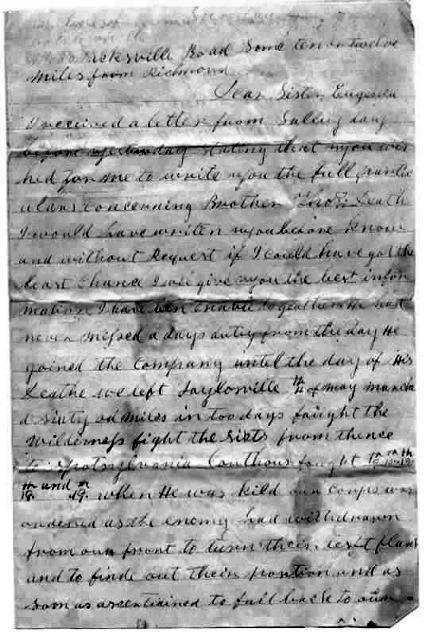 Road Some ten or twelve
miles from Richmond
Dear Sister Eugenia
I received a letter from day
before yesterday stating that you wis
hed for me to write you the full partic
ulars concerning Brother Death
I would have writen you before know
and without Request if I could have got the
least chance I will give you the best infor
mation I have ben enable to geather He has
never missed a days duty from the day He
joined the Company until the day of His
Deathe we left Taylorville 4th of may march
d sixty od miles in too days faught the
Wilderness fight the sixts from thence
to Spotsylvania Courthous faught
18th and 19th when He was kild our corps was
ordered as the enemy had withdrawn
from our front to turn their flank
and to finde out their position and as
soon as ascertained to fall back to our